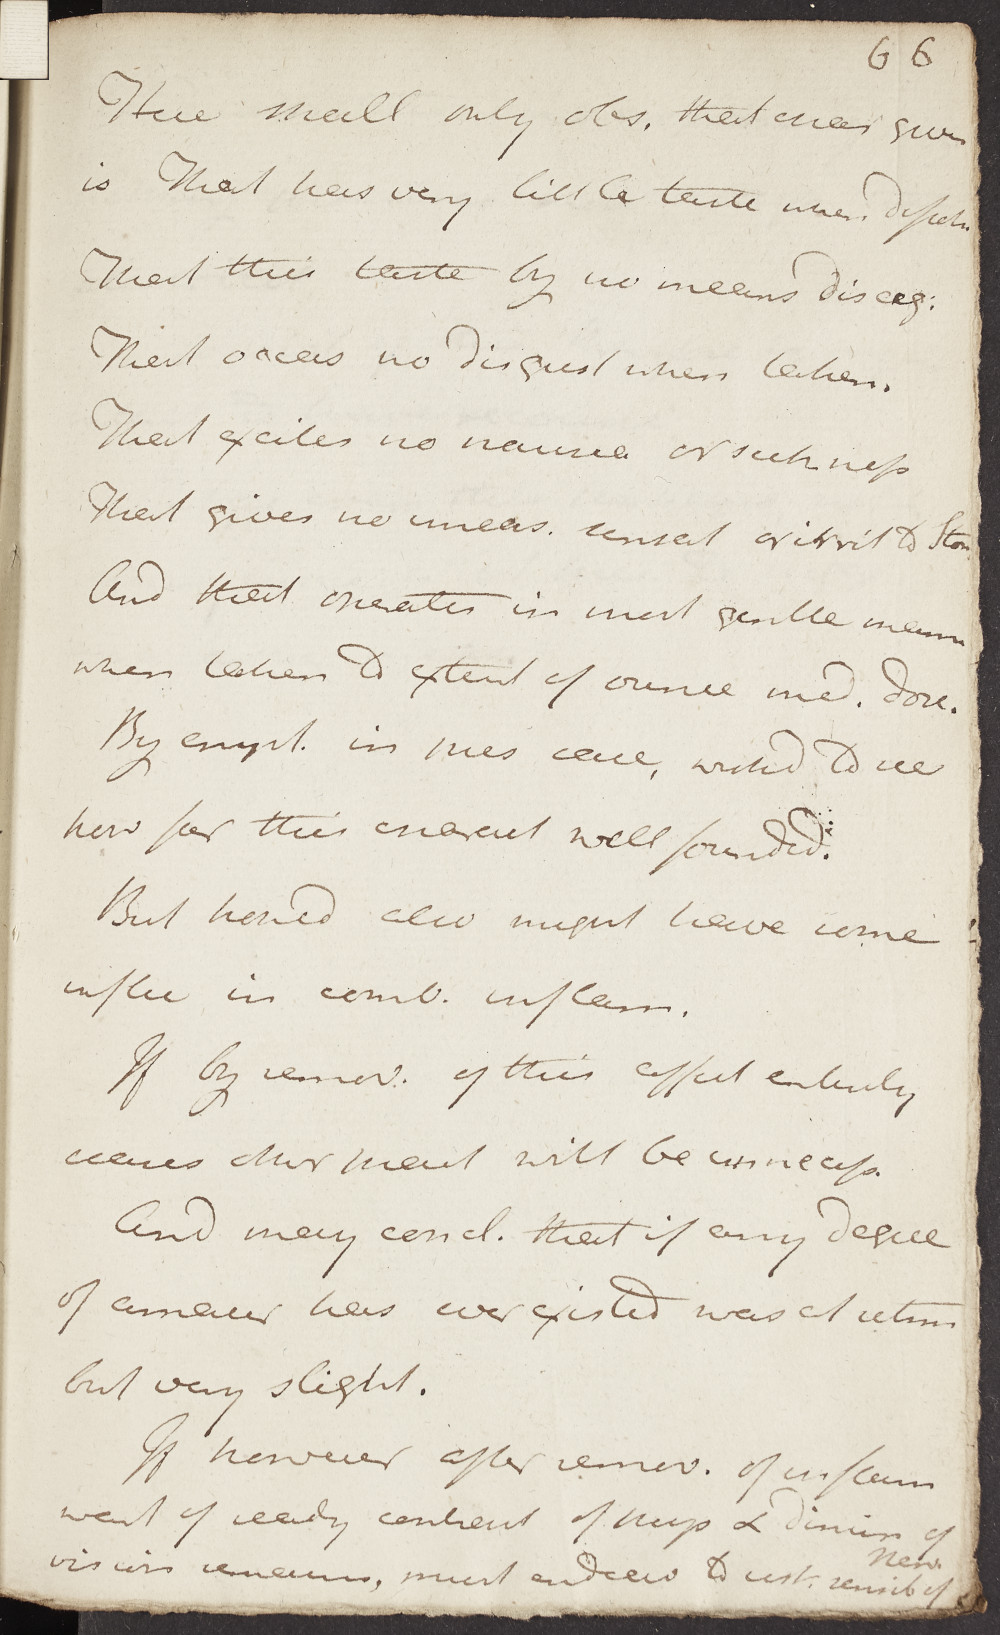 66
Here shall only obs. that char given
is That has very little taste when dissolv
That this taste by no means disag:
That occas no disgust when taken.
That excites no nausea or sickness
That gives no uneas. sensat or irrit to Stom
And that operates in most gentle mann
when taken to extent of ounce med. dose.
By empl. in pres case, wished to see
how far this charact well founded.
But hoped also might have some
influe in comb. inflam.
If by remov. of this affect entirely
ceases other pract will be unnecess.
And may concl. that if any degree
of amaur has ever existed was at utm
but very slight.
If however after remov. of inflam
want of ready contract of pup & dimin of
vision remains, must endeav to rest. sensib of
Nerv.